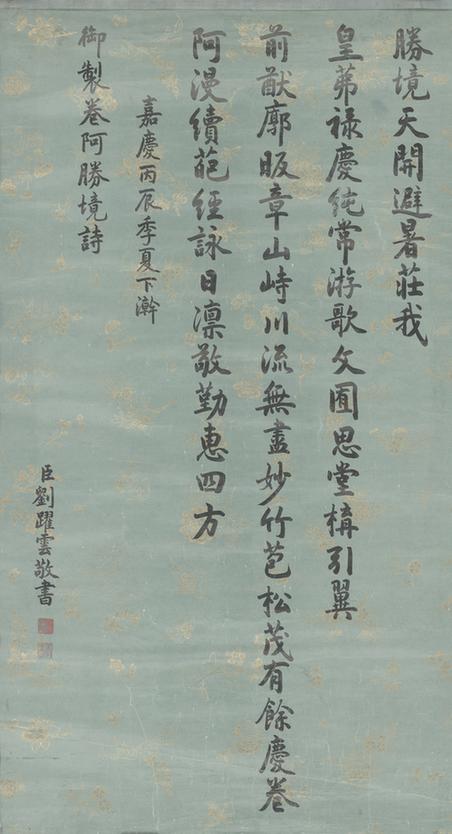 勝境天開避暑莊我
皇茀祿慶純常游歌文囿思堂構引翼
前猷廓昄章山峙川流無盡妙竹苞松茂有餘慶卷
阿漫續葩經詠日凛敬勤惠四方
嘉慶丙辰季夏下澣
御製卷阿勝境詩
臣劉躍雲敬書